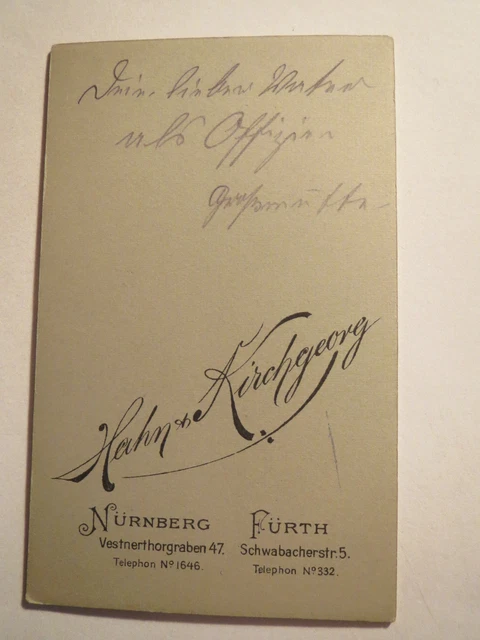 Dein lieber Vater
als Offizier
Großmutter
Hahn & Kirchgeorg
NÜRNBERG FÜRTH
Vestnerthorgraben 47. Schwabacherstr. 5.
Telephon Nº 1646. Telephon Nº 332.